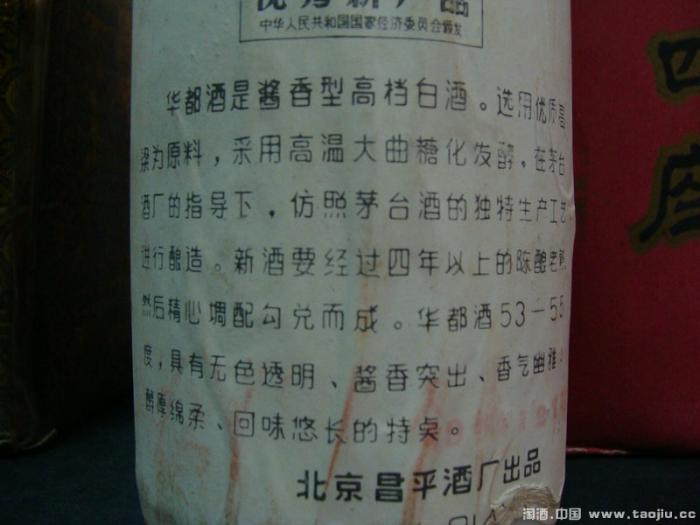 优秀新产品
中华人民共和国国家经济委员会颁发
华都酒是酱香型高档白酒。选用优质高
粱为原料，采用高温大曲糖化发酵。在茅台
酒厂的指导下，仿照茅台酒的独特生产工艺
进行酿造。新酒要经过四年以上的陈酿老熟
然后精心调配勾兑而成。华都酒53—55
度，具有无色透明、酱香突出、香气幽雅、
醇厚绵柔、回味悠长的特点。
北京昌平酒厂出品
四
座
淘酒.中国 www.taojiu.cc